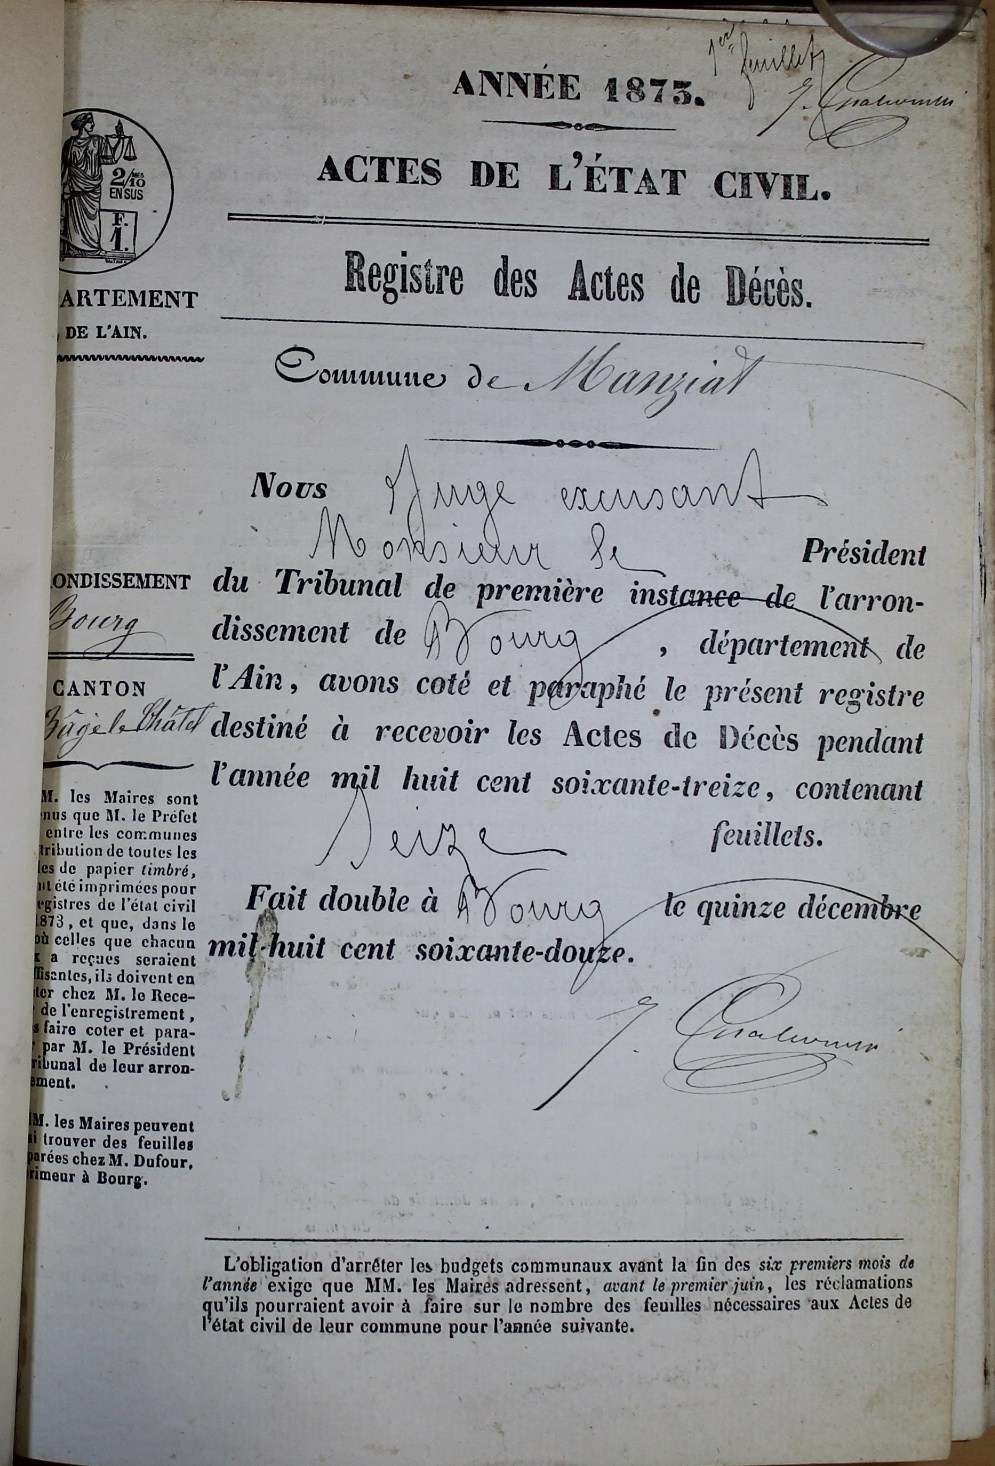 1er feuillet
ANNÉE 1873.
ACTES DE L'ÉTAT CIVIL.
2/10
EN SUS
F.
1.
Registre des Actes de Décès.
ARTEMENT
DE L'AIN.
Commune de Manziat
Nous Juge excusant
Monsieur le Président
du Tribunal de première instance de l'arron-
dissement de Bourg, département de
l'Ain, avons coté et paraphé le présent registre
destiné à recevoir les Actes de Décès pendant
l'année mil huit cent soixante-treize, contenant
Seize feuillets.
Fait double à Bourg le quinze décembre
mil-huit cent soixante-douze.
ONDISSEMENT
Bourg
CANTON
Bâgé le Châtel
M. les Maires sont
nus que M. le Préfet
entre les communes
tribution de toutes les
les de papier timbré,
nt été imprimées pour
egistres de l'état civil
1873, et que, dans le
où celles que chacun
x a reçues seraient
ffisantes, ils doivent en
ter chez M. le Rece-
de l'enregistrement,
s faire coter et para-
r par M. le Président
ribunal de leur arron-
ement.
MM. les Maires peuvent
si trouver des feuilles
parées chez M. Dufour,
rimeur à Bourg.
L'obligation d'arrêter les budgets communaux avant la fin des six premiers mois de
l'année exige que MM. les Maires adressent, avant le premier juin, les réclamations
qu'ils pourraient avoir à faire sur le nombre des feuilles nécessaires aux Actes de
l'état civil de leur commune pour l'année suivante.